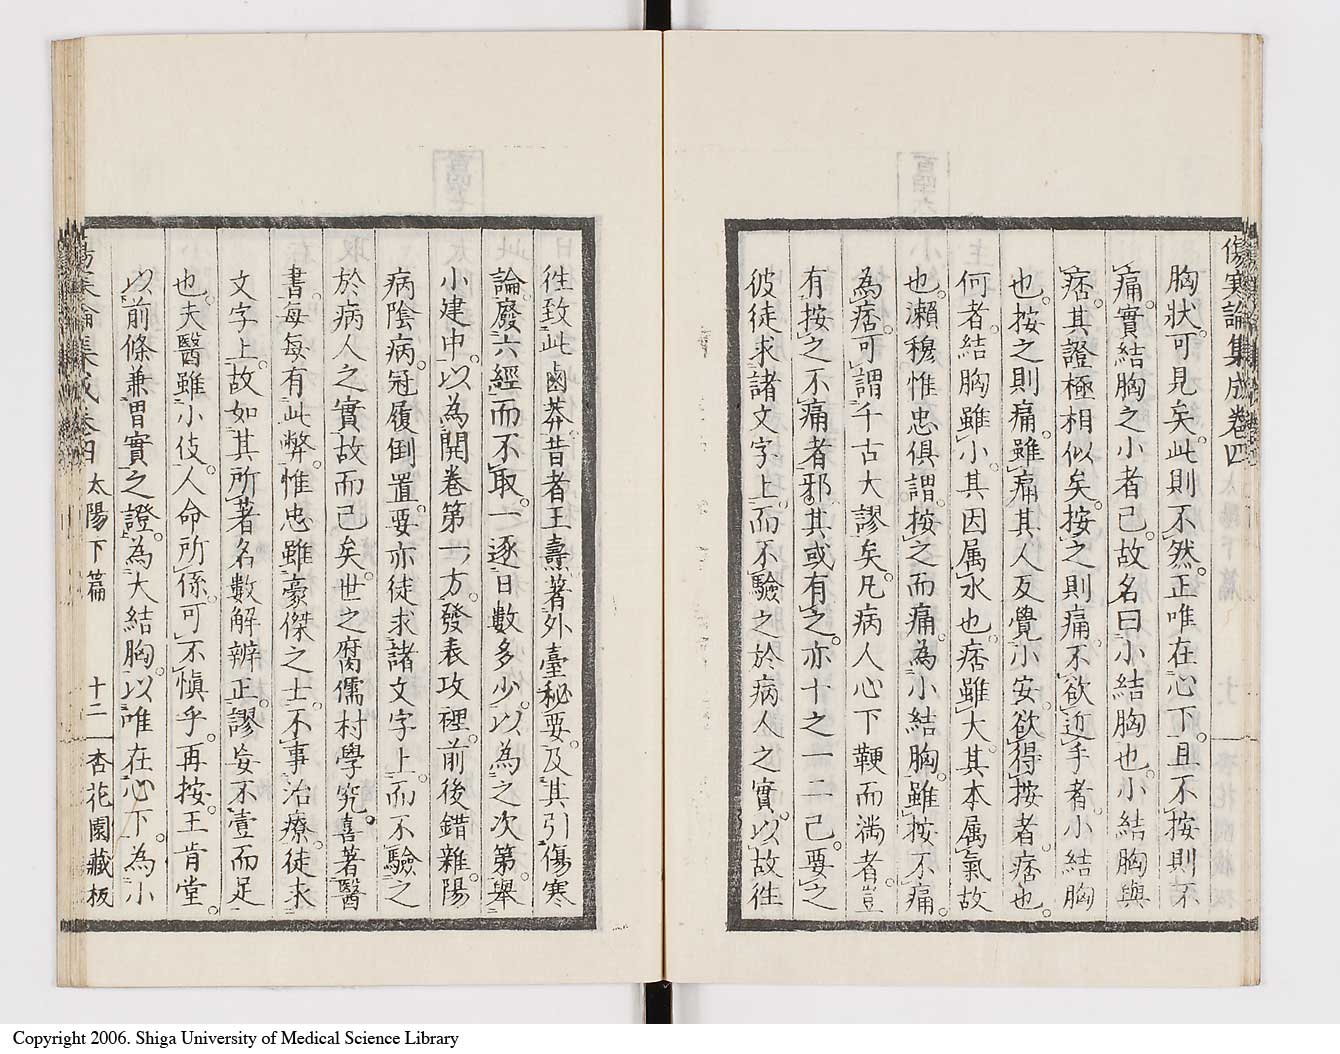 傷寒論集成卷四
胸狀。可見矣。此則不然。正唯在心下。且不按則不
痛。實結胸之小者已。故名曰小結胸也。小結胸與
痞。其證極相似矣。按之則痛。不欲近手者。小結胸
也。按之則痛。雖痛其人反覺小安。欲得按者。痞也。
何者。結胸雖小。其因属水也。痞雖大。其本属氣故
也。瀨穆惟忠俱謂。按之而痛。為小結胸。雖按不痛。
為痞。可謂千古大謬矣。凡病人心下鞕而滿者。豈
有按之不痛者邪。其或有之。亦十之一二已。要之
彼徒求諸文字上。而不驗之於病人之實。以故往
往致此鹵莽。昔者王燾著外臺秘要。及其引傷寒
論。廢六經而不取。一逐日數多少。以為之次第。舉
小建中。以為開卷第一方。發表攻裡。前後錯雜。陽
病陰病。冠履倒置。要亦徒求諸文字上。而不驗之
於病人之實。故而已矣。世之腐儒村學究。喜著醫
書。每每有此弊。惟忠雖豪傑之士。不事治療。徒求
文字上。故如其所著名數解辨正。謬妄不壹而足
也。夫醫雖小伎。人命所係。可不慎乎。再按。王肯堂
以前條兼胃實之證。為大結胸。以唯在心下。為小
集成卷四 太陽下篇 十二 杏花園藏板
Copyright 2006. Shiga University of Medical Science Library